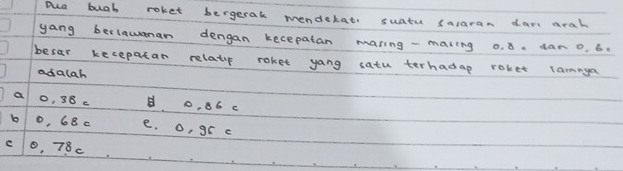 Dua buah roket bergerak mendekati suatu sasaran dari arah
yang berlawanan dengan kecepatan masing-masing 0,8c dan 0,6c
besar kecepatan relatif roket yang satu terhadap roket lainnya
adalah
a 0,38 c d 0,86 c
b 0,68 c e. 0,95 c
c 0,78c